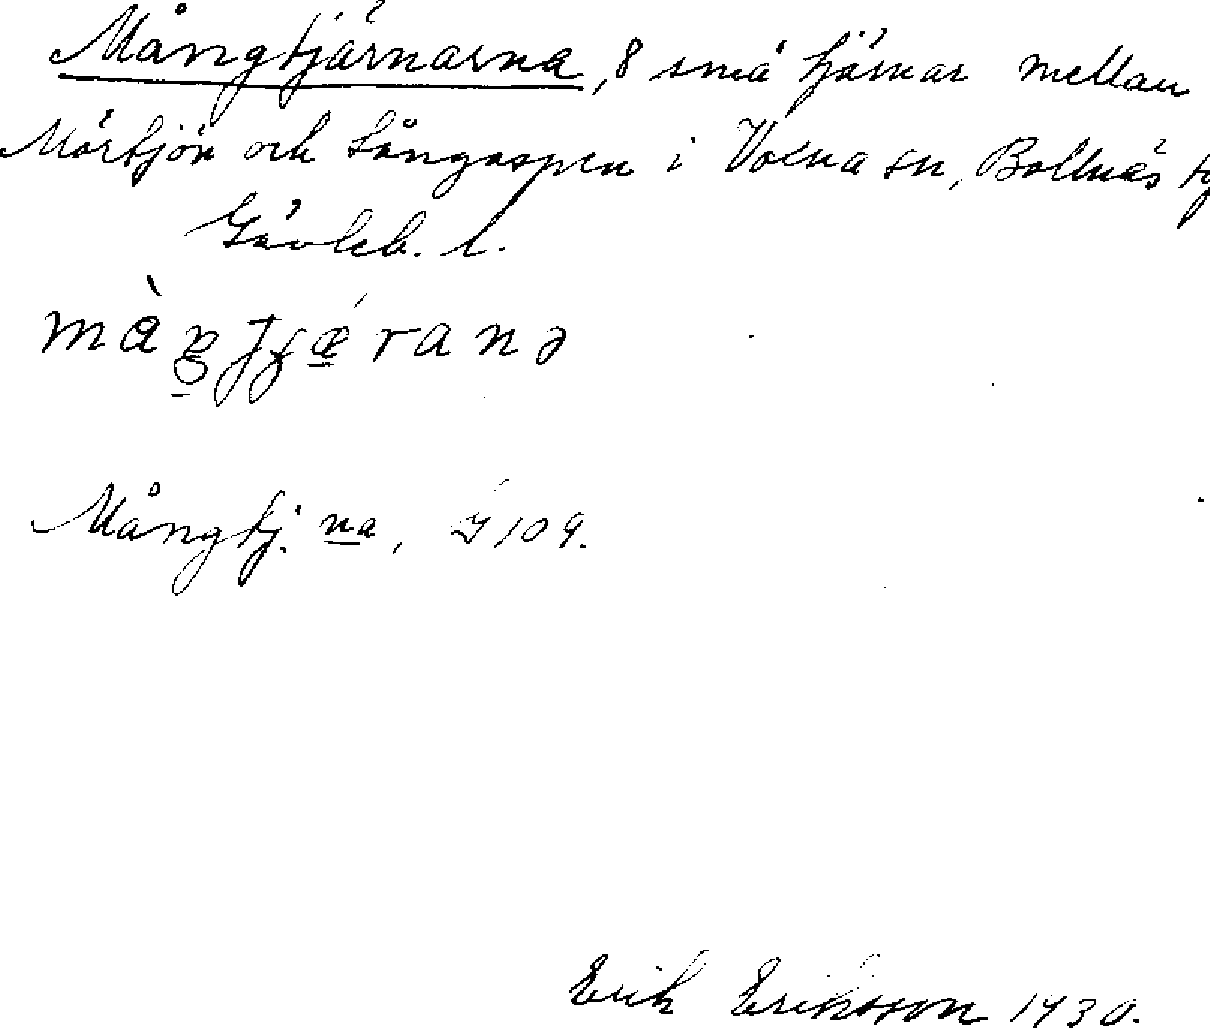 Mångtjärnarna, 8 små tjärnar mellan
Mörtjön och Långaspen i Voxna sn, Bollnäs
Gävleb. l.
Mångtj. na, J 109.
Erik Eriksson 1930.